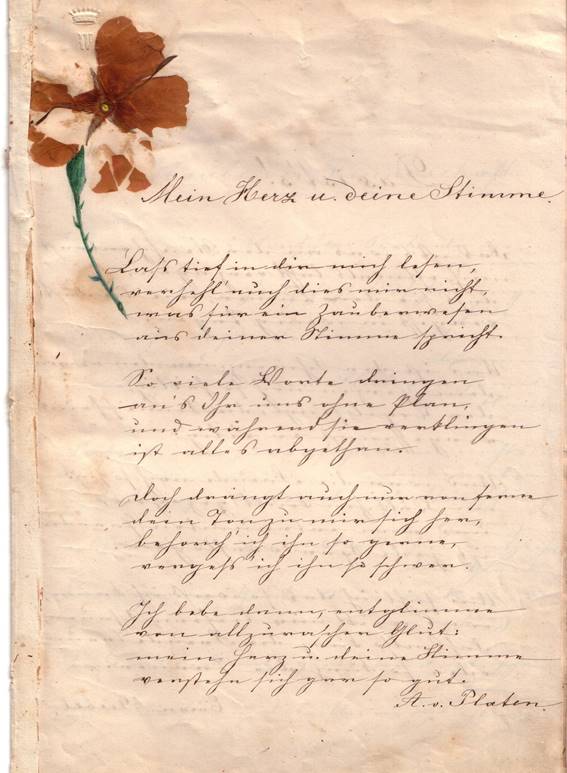 Mein Herz u. deine Stimme.
Lass tief in dir mich lesen,
verhehl' auch dies mir nicht,
was für ein Zauberwesen
aus deiner Stimme spricht.
So viele Worte dringen
an's Ohr uns ohne Plan,
und während sie verklingen
ist alles abgethan.
Doch drängt auch nur von ferne
dein Ton zu mir sich her,
behorch' ich ihn so gerne,
vergess' ich ihn so schwer.
Ich bebe dann, entglimme
von allzurascher Glut:
mein Herz u. deine Stimme
verstehn sich gar so gut.
A. v. Platen.